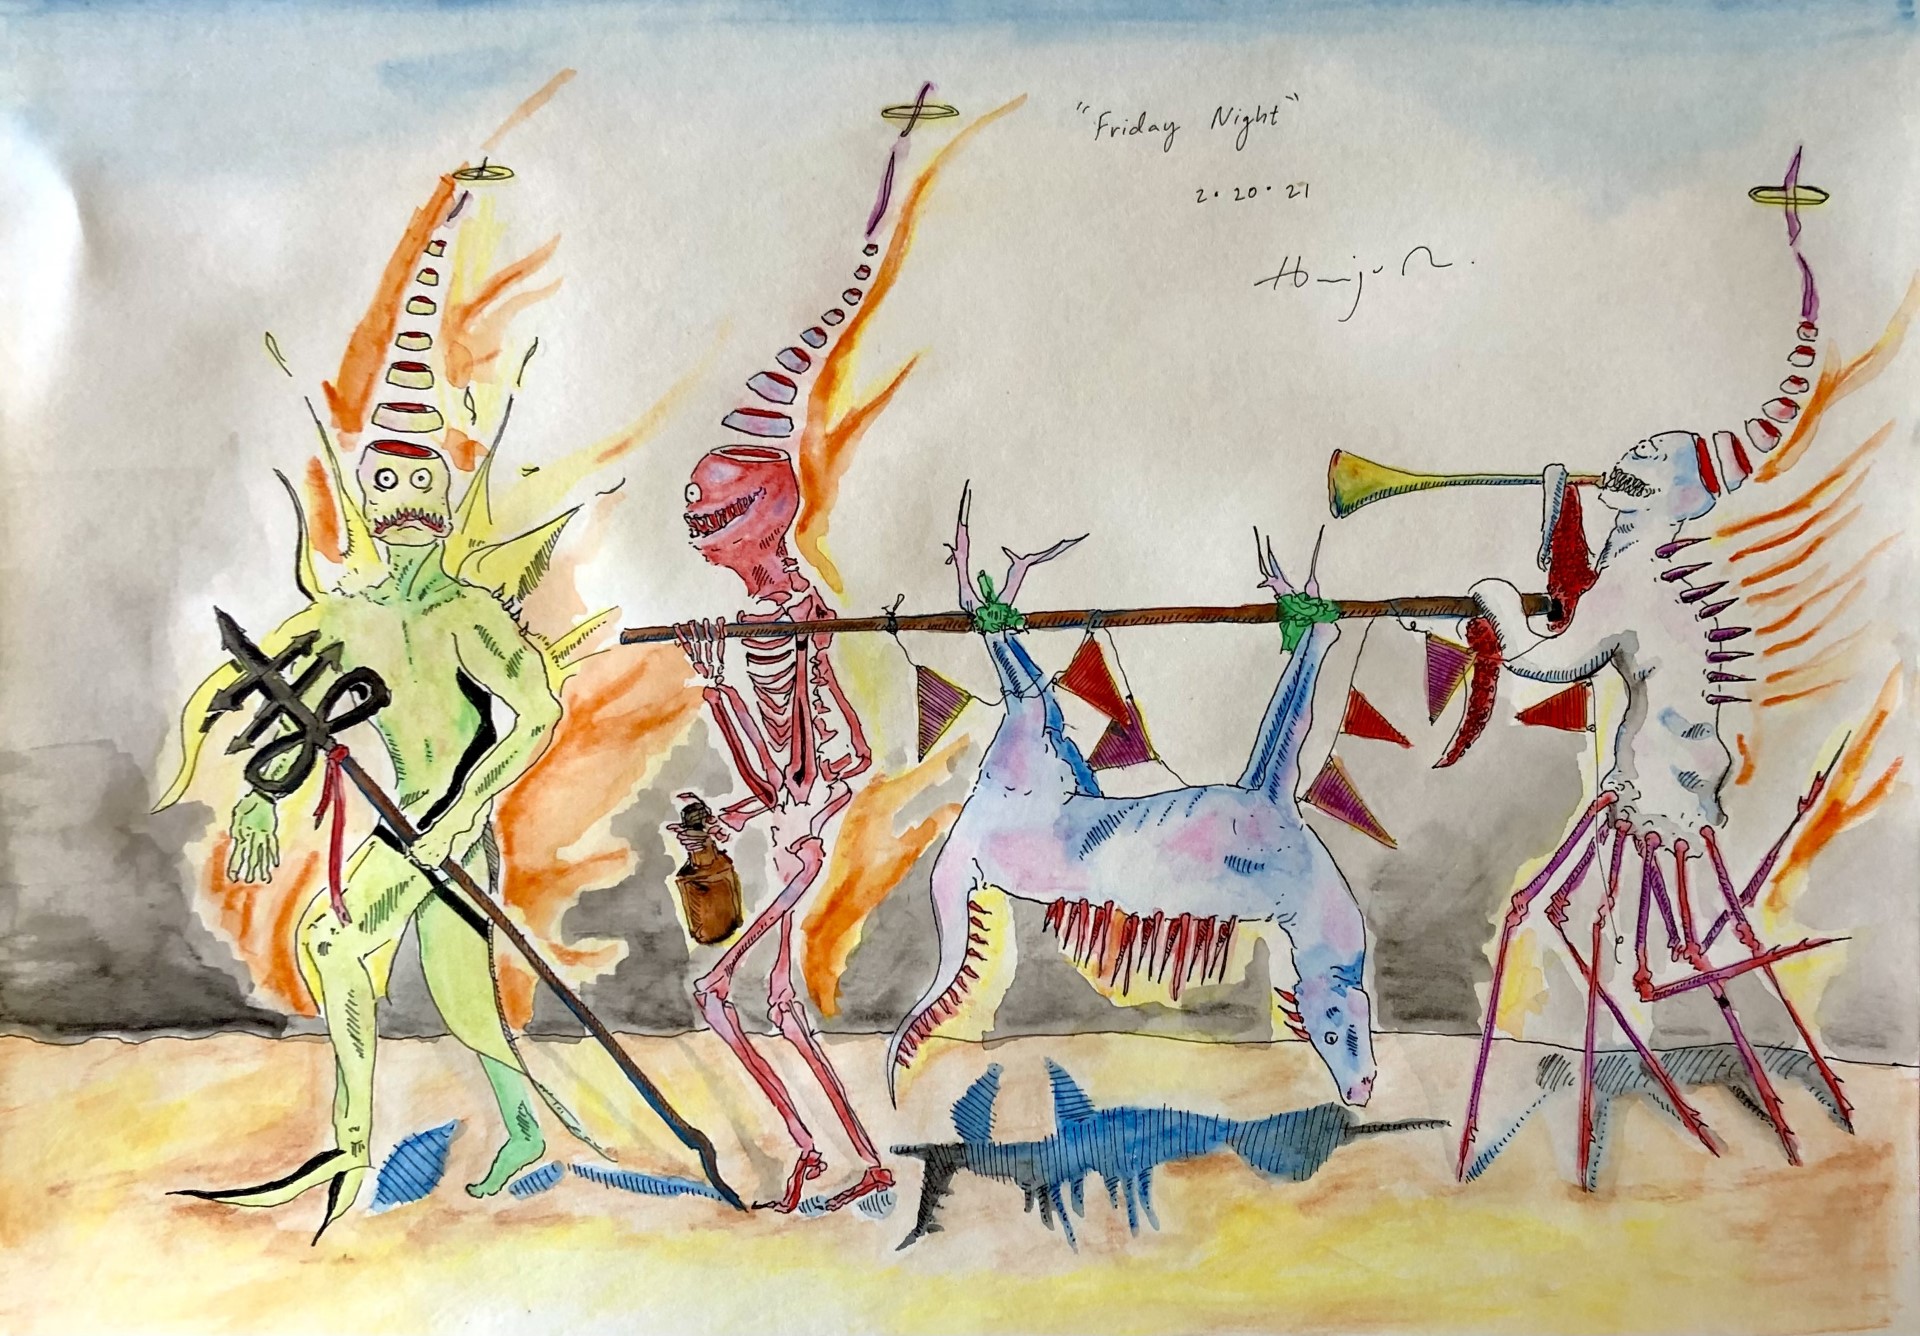 "Friday Night"
2·20·21